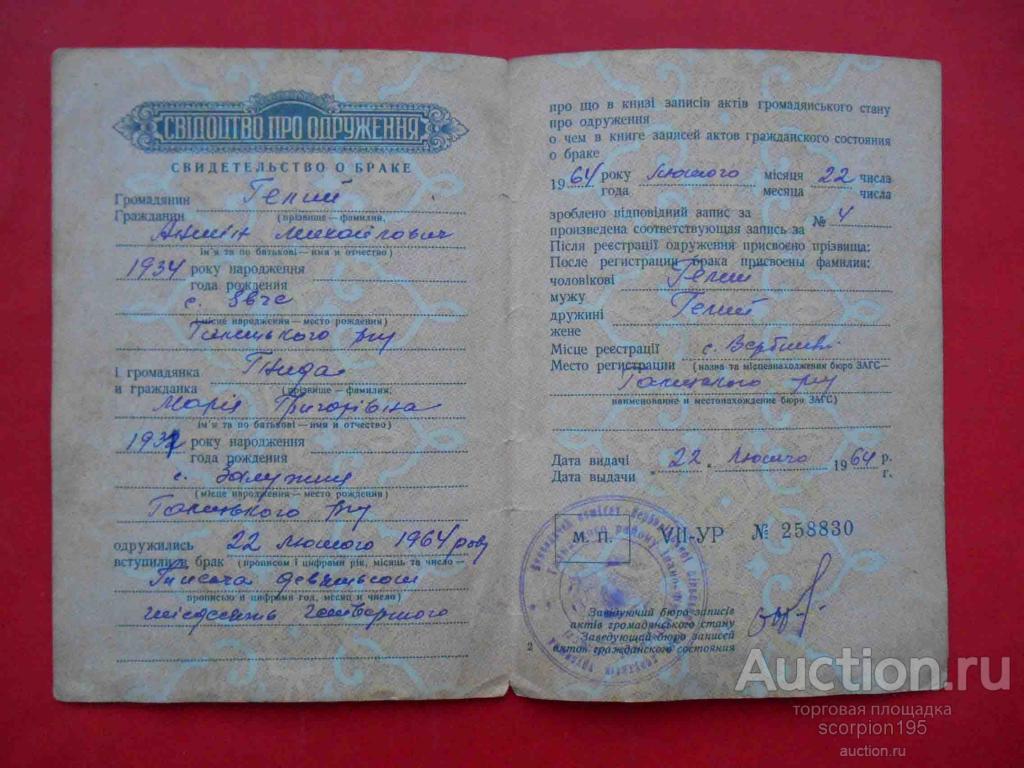 СВІДОЦТВО ПРО ОДРУЖЕННЯ
СВИДЕТЕЛЬСТВО О БРАКЕ
Громадянин
Гражданин
(прізвище — фамилия,
Михайлович
ім'я та по батькові — имя и отчество)
1934 року народження
года рождения
с.
(місце народження — место рождения)
Галицького р-ну
І громадянка Гнида
и гражданка
(прізвище — фамилия;
Марія Григорівна
ім'я та по батькові — имя и отчество)
року народження
года рождения
с.
(місце народження — место рождения)
Галицького р-ну
одружились 22 лютого 1964 року
вступили в брак (прописом і цифрами рік, місяць та число —
Тисяча девятьсот
прописью и цифрами год, месяц и число)
шістдесять четвертого
про що в книзі записів актів громадянського стану
про одруження
о чем в книге записей актов гражданского состояния
о браке
1964 року лютого місяця 22 числа
года месяца числа
зроблено відповідний запис за № 4
произведена соответствующая запись за
Після реєстрації одруження присвоєно прізвища:
После регистрации брака присвоены фамилии:
чоловікові
мужу
дружині
жене
Місце реєстрації с.
Место регистрации (назва та місцезнаходження бюро ЗАГС—
Галицького р-ну
наименование и местонахождение бюро ЗАГС)
Дата видачі „22„ лютого 1964 р.
Дата выдачи г.
М. П. VII-УР № 258830
Завідуючий бюро записів
актів громадянського стану
Заведующий бюро записей
актов гражданского состояния
2
Auction.ru
торговая площадка
scorpion195
auction.ru